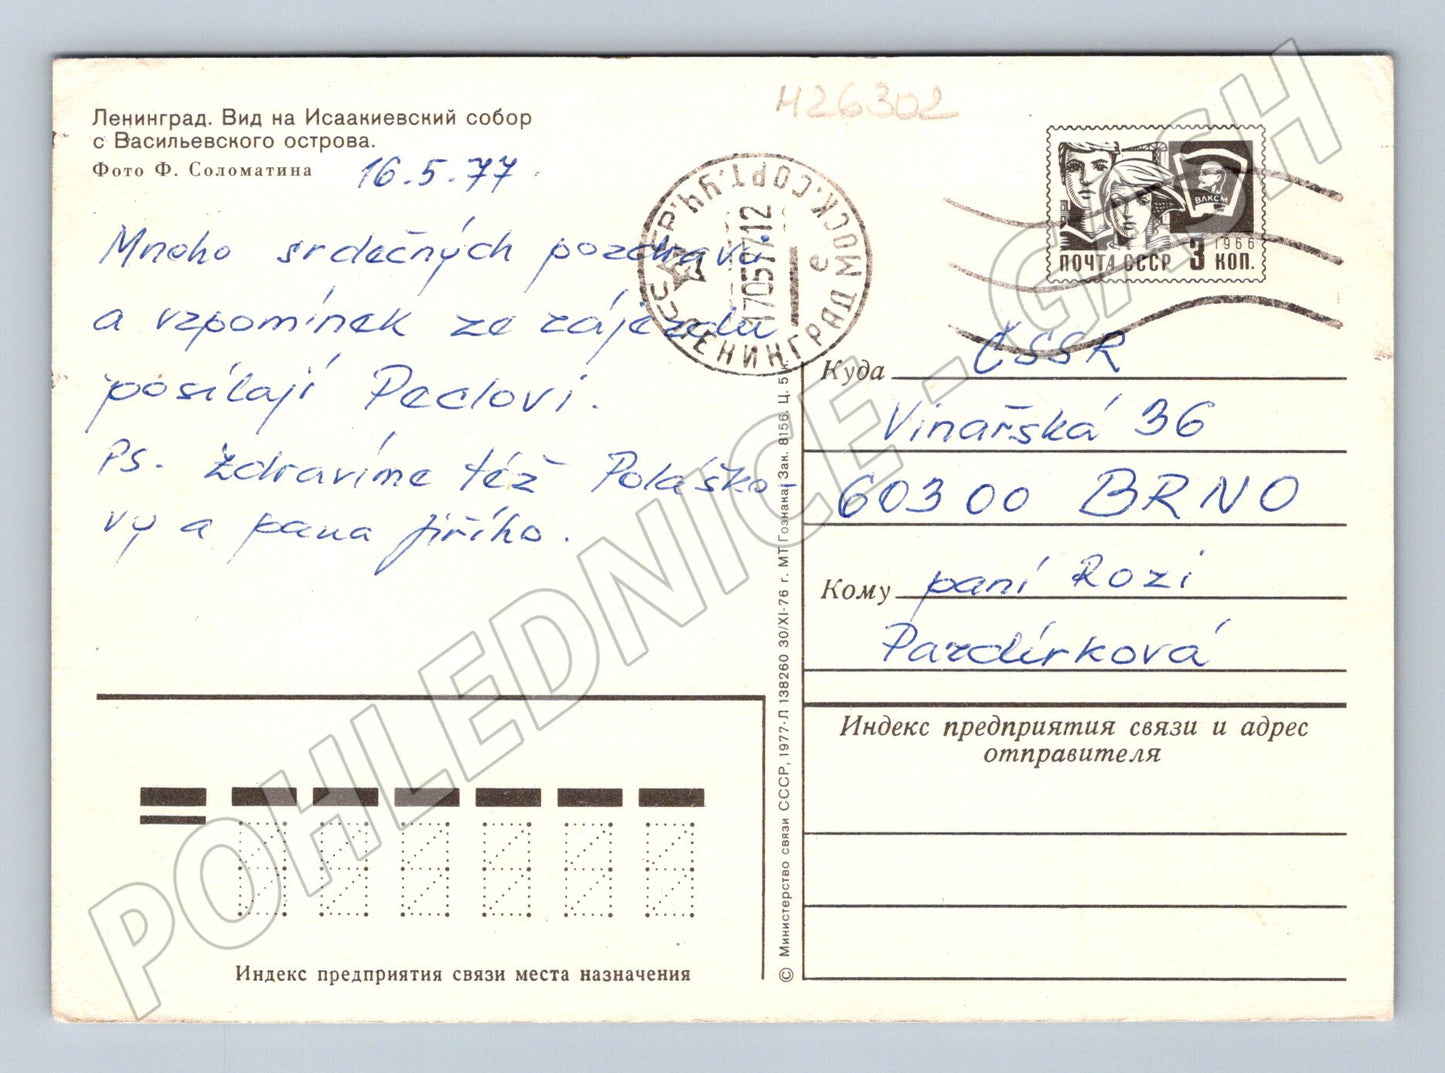 Ленинград. Вид на Исаакиевский собор
с Васильевского острова.
Фото Ф. Соломатина
16.5.77.
Mnoho srdečných pozdravů
a vzpomínek ze zájezdu
posílají Peclovi.
PS. Zdravíme též Poláško
vy a pana Jiřího.
М26302
СССР ЛЕНИНГРАД МОСК.СОРТ.УЧ.
17057712
е
ВЛКСМ
1966
ПОЧТА СССР 3 КОП.
Куда ČSSR
Vinařská 36
603 00 BRNO
Кому paní Rozi
Pazdírková
Индекс предприятия связи и адрес
отправителя
Индекс предприятия связи места назначения
© Министерство связи СССР, 1977-Л 138260 30/XI-76 г. МТ Гознака. Зак. 8156. Ц. 5 к.
POHLEDNICE - GASH